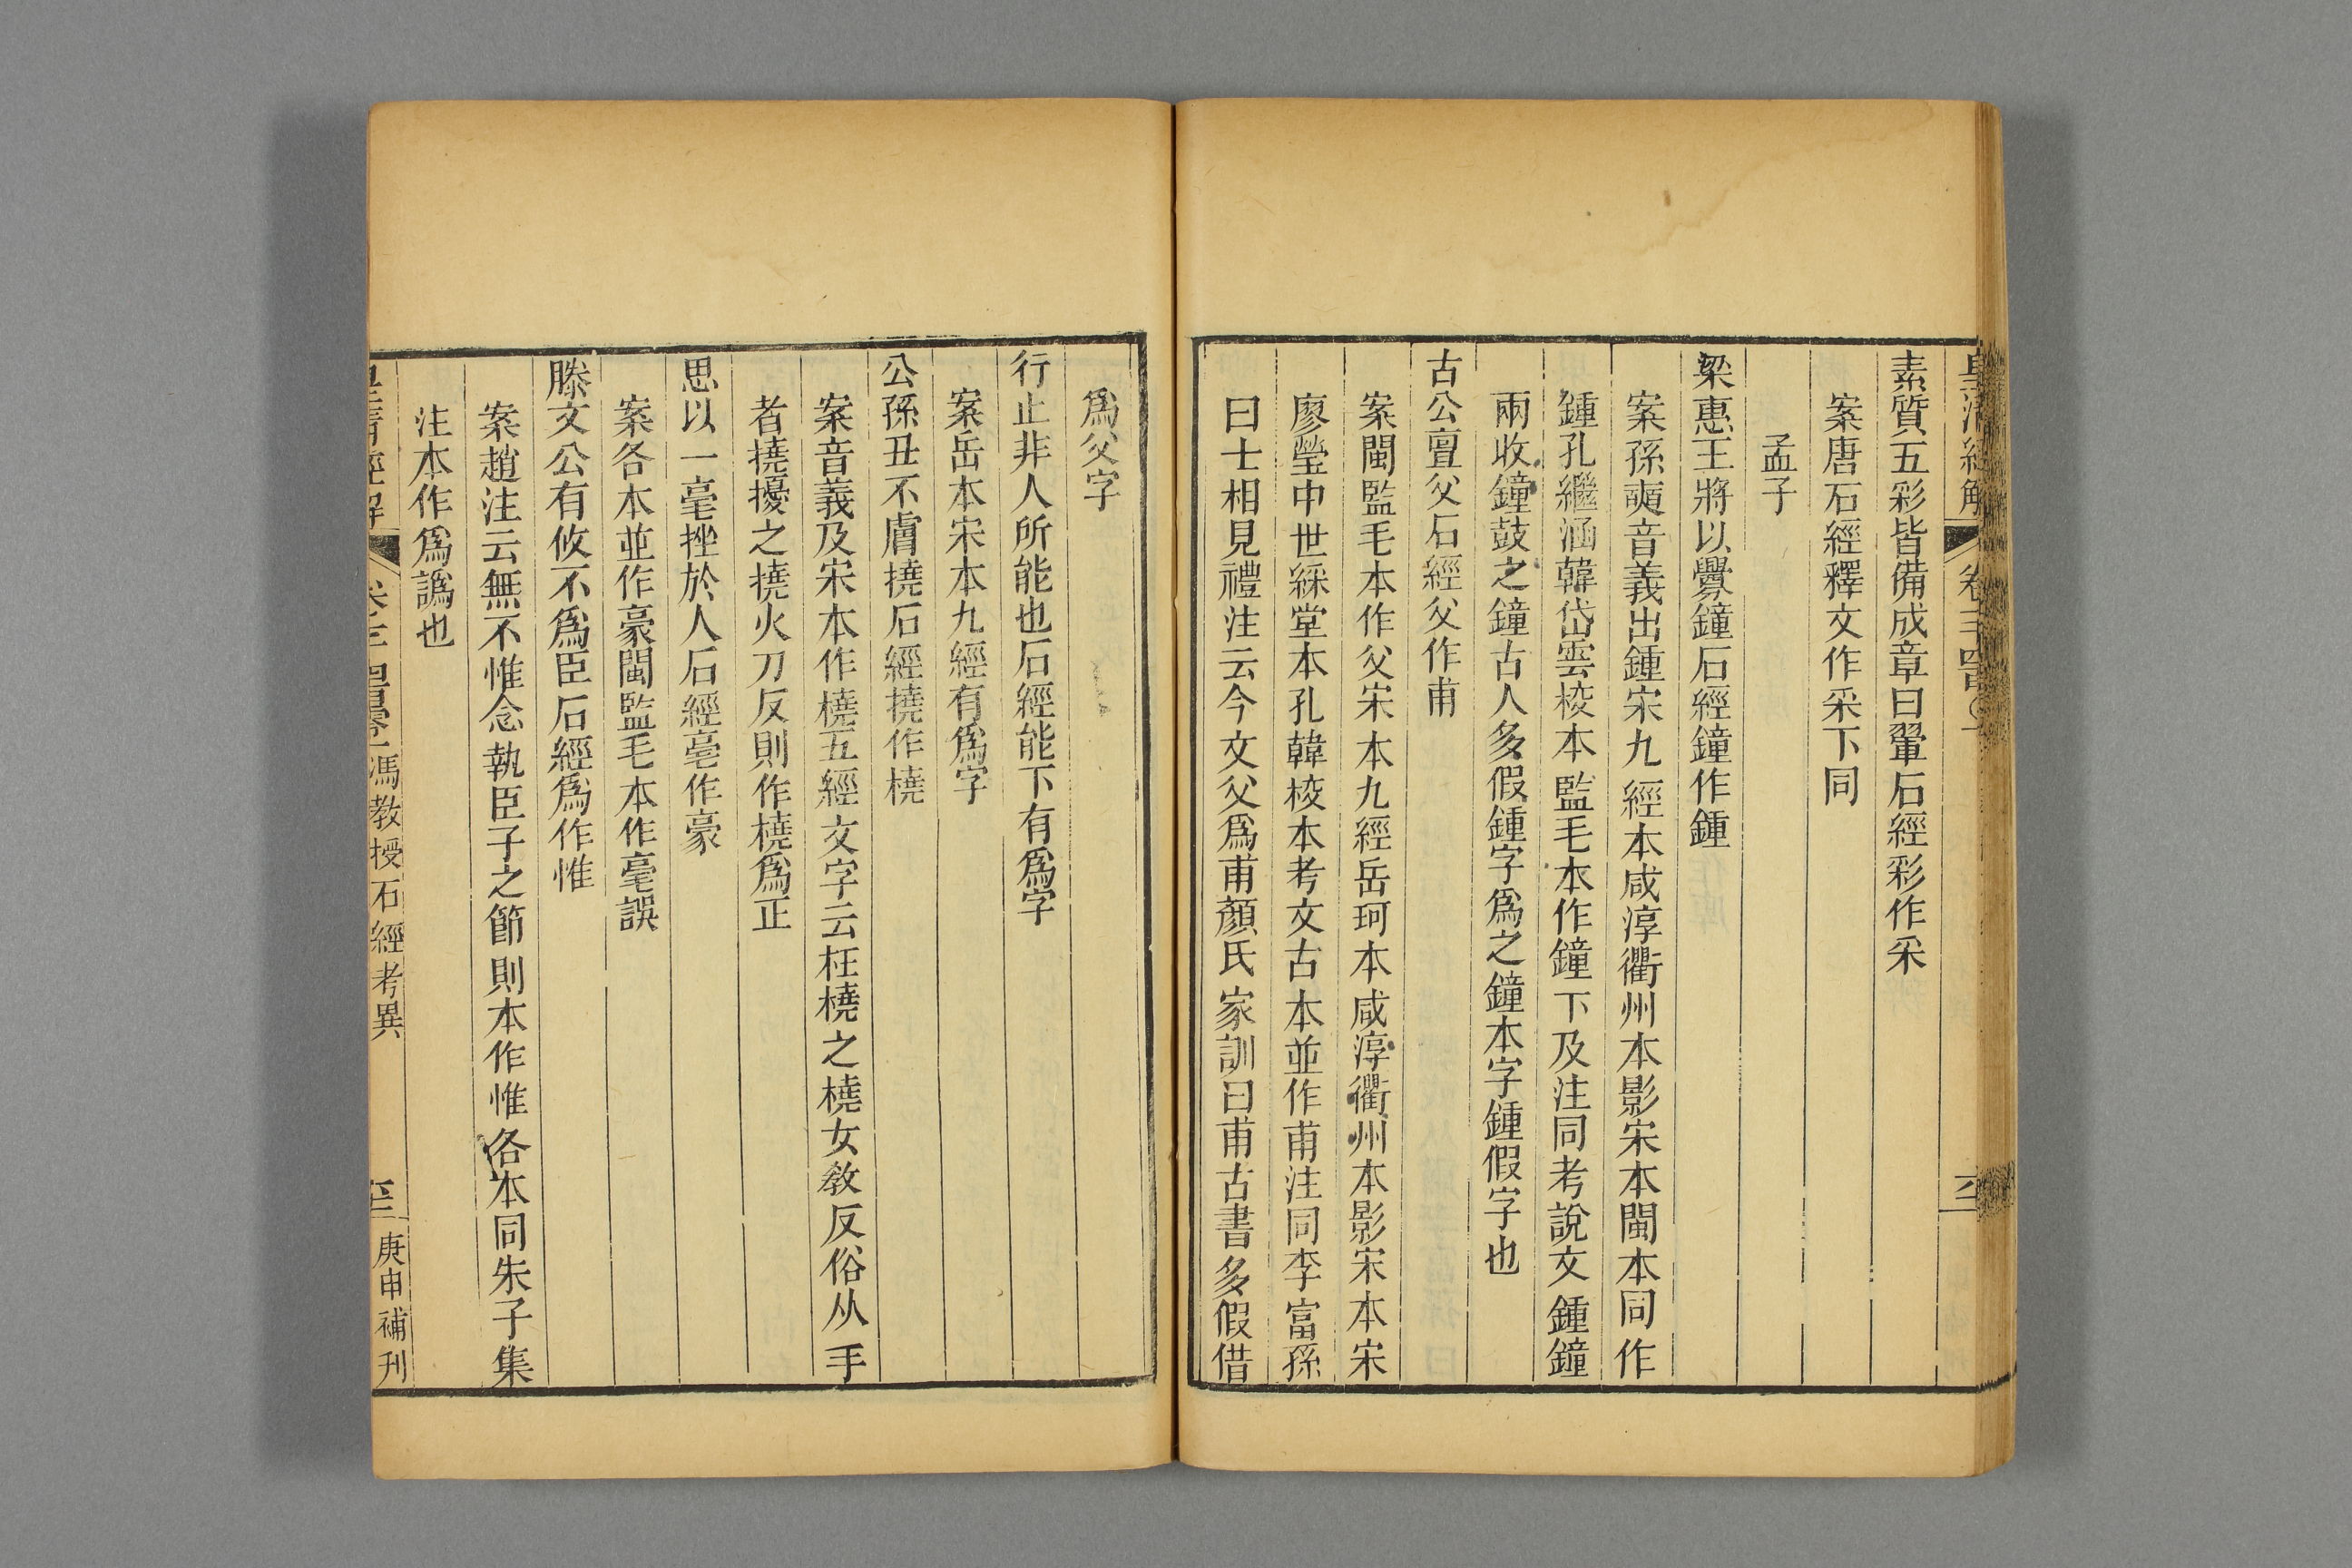 素質五彩皆備成章曰翬石經彩作采
案唐石經釋文作采下同
孟子
梁惠王將以釁鐘石經鐘作鍾
案孫奭音義出鍾宋九經本咸淳衢州本影宋本閩本同作
鍾孔繼涵韓岱雲挍本監毛本作鐘下及注同考說文鍾鐘
兩收鐘鼓之鐘古人多假鍾字爲之鐘本字鍾假字也
古公亶父石經父作甫
案閩監毛本作父宋本九經岳珂本咸淳衢州本影宋本宋
廖瑩中世綵堂本孔韓挍本考文古本並作甫注同李富孫
曰士相見禮注云今文父爲甫顏氏家訓曰甫古書多假借
爲父字
行止非人所能也石經能下有爲字
案岳本宋本九經有爲字
公孫丑不膚撓石經撓作橈
案音義及宋本作橈五經文字云枉橈之橈女教反俗从手
者撓擾之撓火刀反則作橈爲正
思以一毫挫於人石經毫作豪
案各本並作豪閩監毛本作毫誤
滕文公有攸不爲臣石經爲作惟
案趙注云無不惟念執臣子之節則本作惟各本同朱子集
注本作爲譌也
馮教授石經考異
庚申補刊